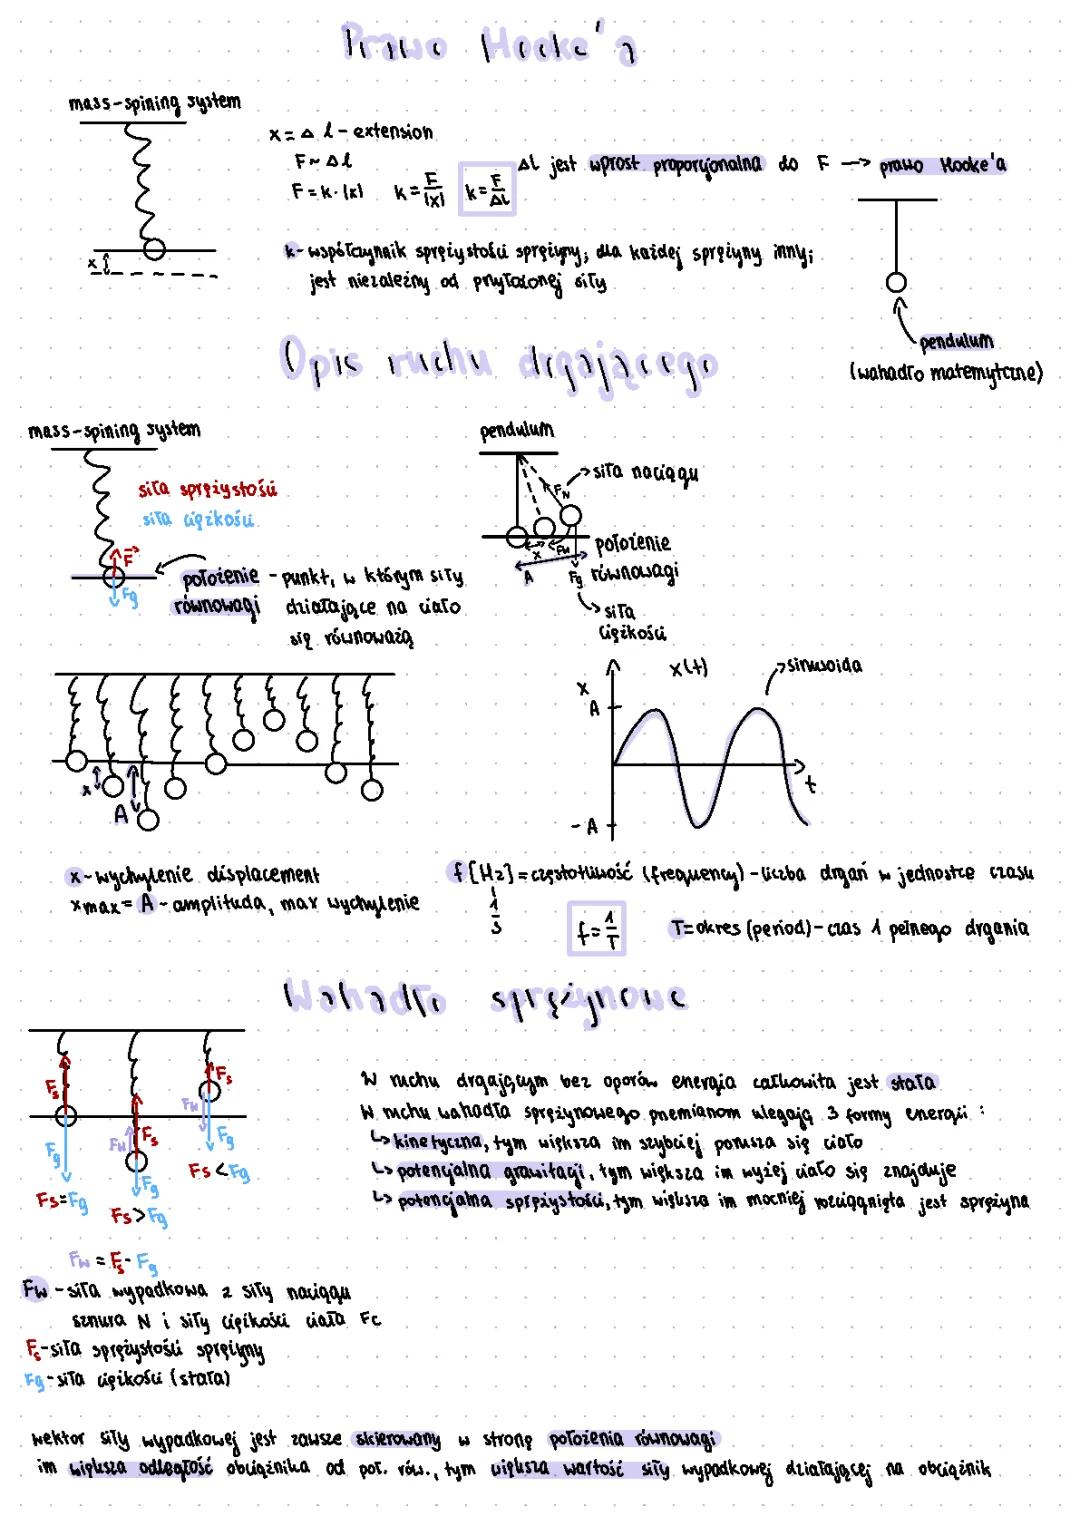 Prawo Hooke'a
mass-spining system
x = Δl - extension
F ~ Δl
F = k · |x| k = F/|x| k = F/Δl
Δl jest wprost proporcjonalna do F → prawo Hooke'a
k - współczynnik sprężystości sprężyny; dla każdej sprężyny inny;
jest niezależny od przyłożonej siły
x
pendulum
(wahadło matemytczne)
Opis ruchu drgającego
mass-spining system
siła sprężystości
siła ciężkości
F
Fg
położenie równowagi - punkt, w którym siły
działające na ciało
się równoważą
pendulum
siła naciągu
FN
x
Fw
A
Fg
położenie
równowagi
siła
ciężkości
x
A
x(t)
sinusoida
x
A
t
-A
x - wychylenie displacement
xmax = A - amplituda, max wychylenie
f [Hz] = częstotliwość (frequency) - liczba drgań w jednostce czasu
1/s
f = 1/T
T = okres (period) - czas 1 pełnego drgania
Wahadło sprężynowe
Fs
Fg
Fs = Fg
Fw
Fs
Fg
Fs > Fg
Fs
Fw
Fg
Fs < Fg
W ruchu drgającym bez oporów energia całkowita jest stała
W ruchu wahadła sprężynowego przemianom ulegają 3 formy energii:
↳ kinetyczna, tym większa im szybciej porusza się ciało
↳ potencjalna grawitacji, tym większa im wyżej ciało się znajduje
↳ potencjalna sprężystości, tym większa im mocniej rozciągnięta jest sprężyna
Fw = Fs - Fg
Fw - siła wypadkowa z siły naciągu
sznura N i siły ciężkości ciała Fc
Fs - siła sprężystości sprężyny
Fg - siła ciężkości (stała)
wektor siły wypadkowej jest zawsze skierowany w stronę położenia równowagi
im większa odległość obciążnika od poł. rów., tym większa wartość siły wypadkowej działającej na obciążnik